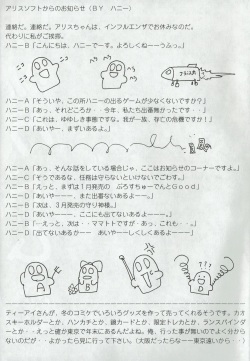 アリスソフトからのお知らせ（ＢＹ　ハニー）
連絡だ。連絡だ。アリスちゃんは、インフルエンザでお休みなのだ。
代わりに私がご挨拶。
ハニーＢ「こんにちは、ハニーでーす。よろしくねーーうふっ。」
ハニーＡ「そういや、この所ハニーの出るゲームが少なくないですか？」
ハニーＢ「あっ、それどころか‥‥今年、私たち出番無かったです‥」
ハニーＣ「これは、由々しき事態ですな。我が一族、存亡の危機ですか！」
ハニーＤ「あいやー、まずいあるよ。」
ハニーＡ「あっ、そんな話をしている場合じゃ、ここはお知らせのコーナーですよ。」
ハニーＣ「そうであるな、任務は守らないといけないであります。」
ハニーＢ「えっと、まずは１月発売の　ぷろすちゅーでんとＧｏｏｄ」
ハニーＤ「あいやーーー、また出番ないあるよーー。」
ハニーＢ「次は、３月発売の守り神様。」
ハニーＤ「あいやーーー、ここにも出てないあるよーーー。」
ハニーＢ「えっと‥次は‥‥ママトトですが、あっ、これも‥」
ハニーＤ「出てないあるかーー　あいやーーしくしくあるよーー」
ティーアイさんが、冬のコミケでいろいろグッズを作って売ってくれるそうです。カオス
キーホルダーとか、ハンカチとか、鏡カードとか、限定トレカとか、ランスバインダ
ーとか‥‥えっと確か東京で年末にあるんだよね。俺、行った事が無いのでよく分から
ないのだが‥‥よかったら見に行って下さい。（大阪だったらなーー東京遠いから‥）